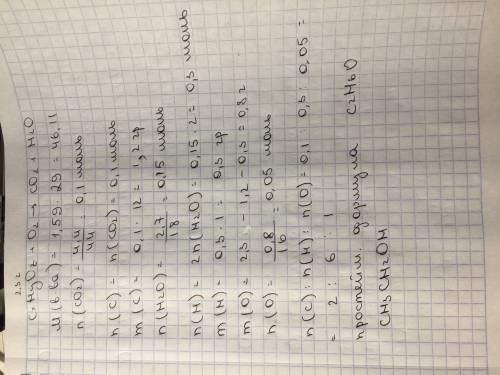 2,3 г
CxHyOz + O2 → CO2 + H2O
M (в ва) = 1,59 · 29 = 46,11
n (CO2) = 4,4 / 44 = 0,1 моль
n (C) = n (CO2) = 0,1 моль
m (C) = 0,1 · 12 = 1,2 гр
n (H2O) = 2,7 / 18 = 0,15 моль
n (H) = 2n (H2O) = 0,15 · 2 = 0,3 моль
m (H) = 0,3 · 1 = 0,3 гр
m (O) = 2,3 - 1,2 - 0,3 = 0,8 г
n (O) = 0,8 / 16 = 0,05 моль
n (C) : n (H) : n (O) = 0,1 : 0,3 : 0,05 =
= 2 : 6 : 1
простейш. формула C2H6O
CH3CH2OH